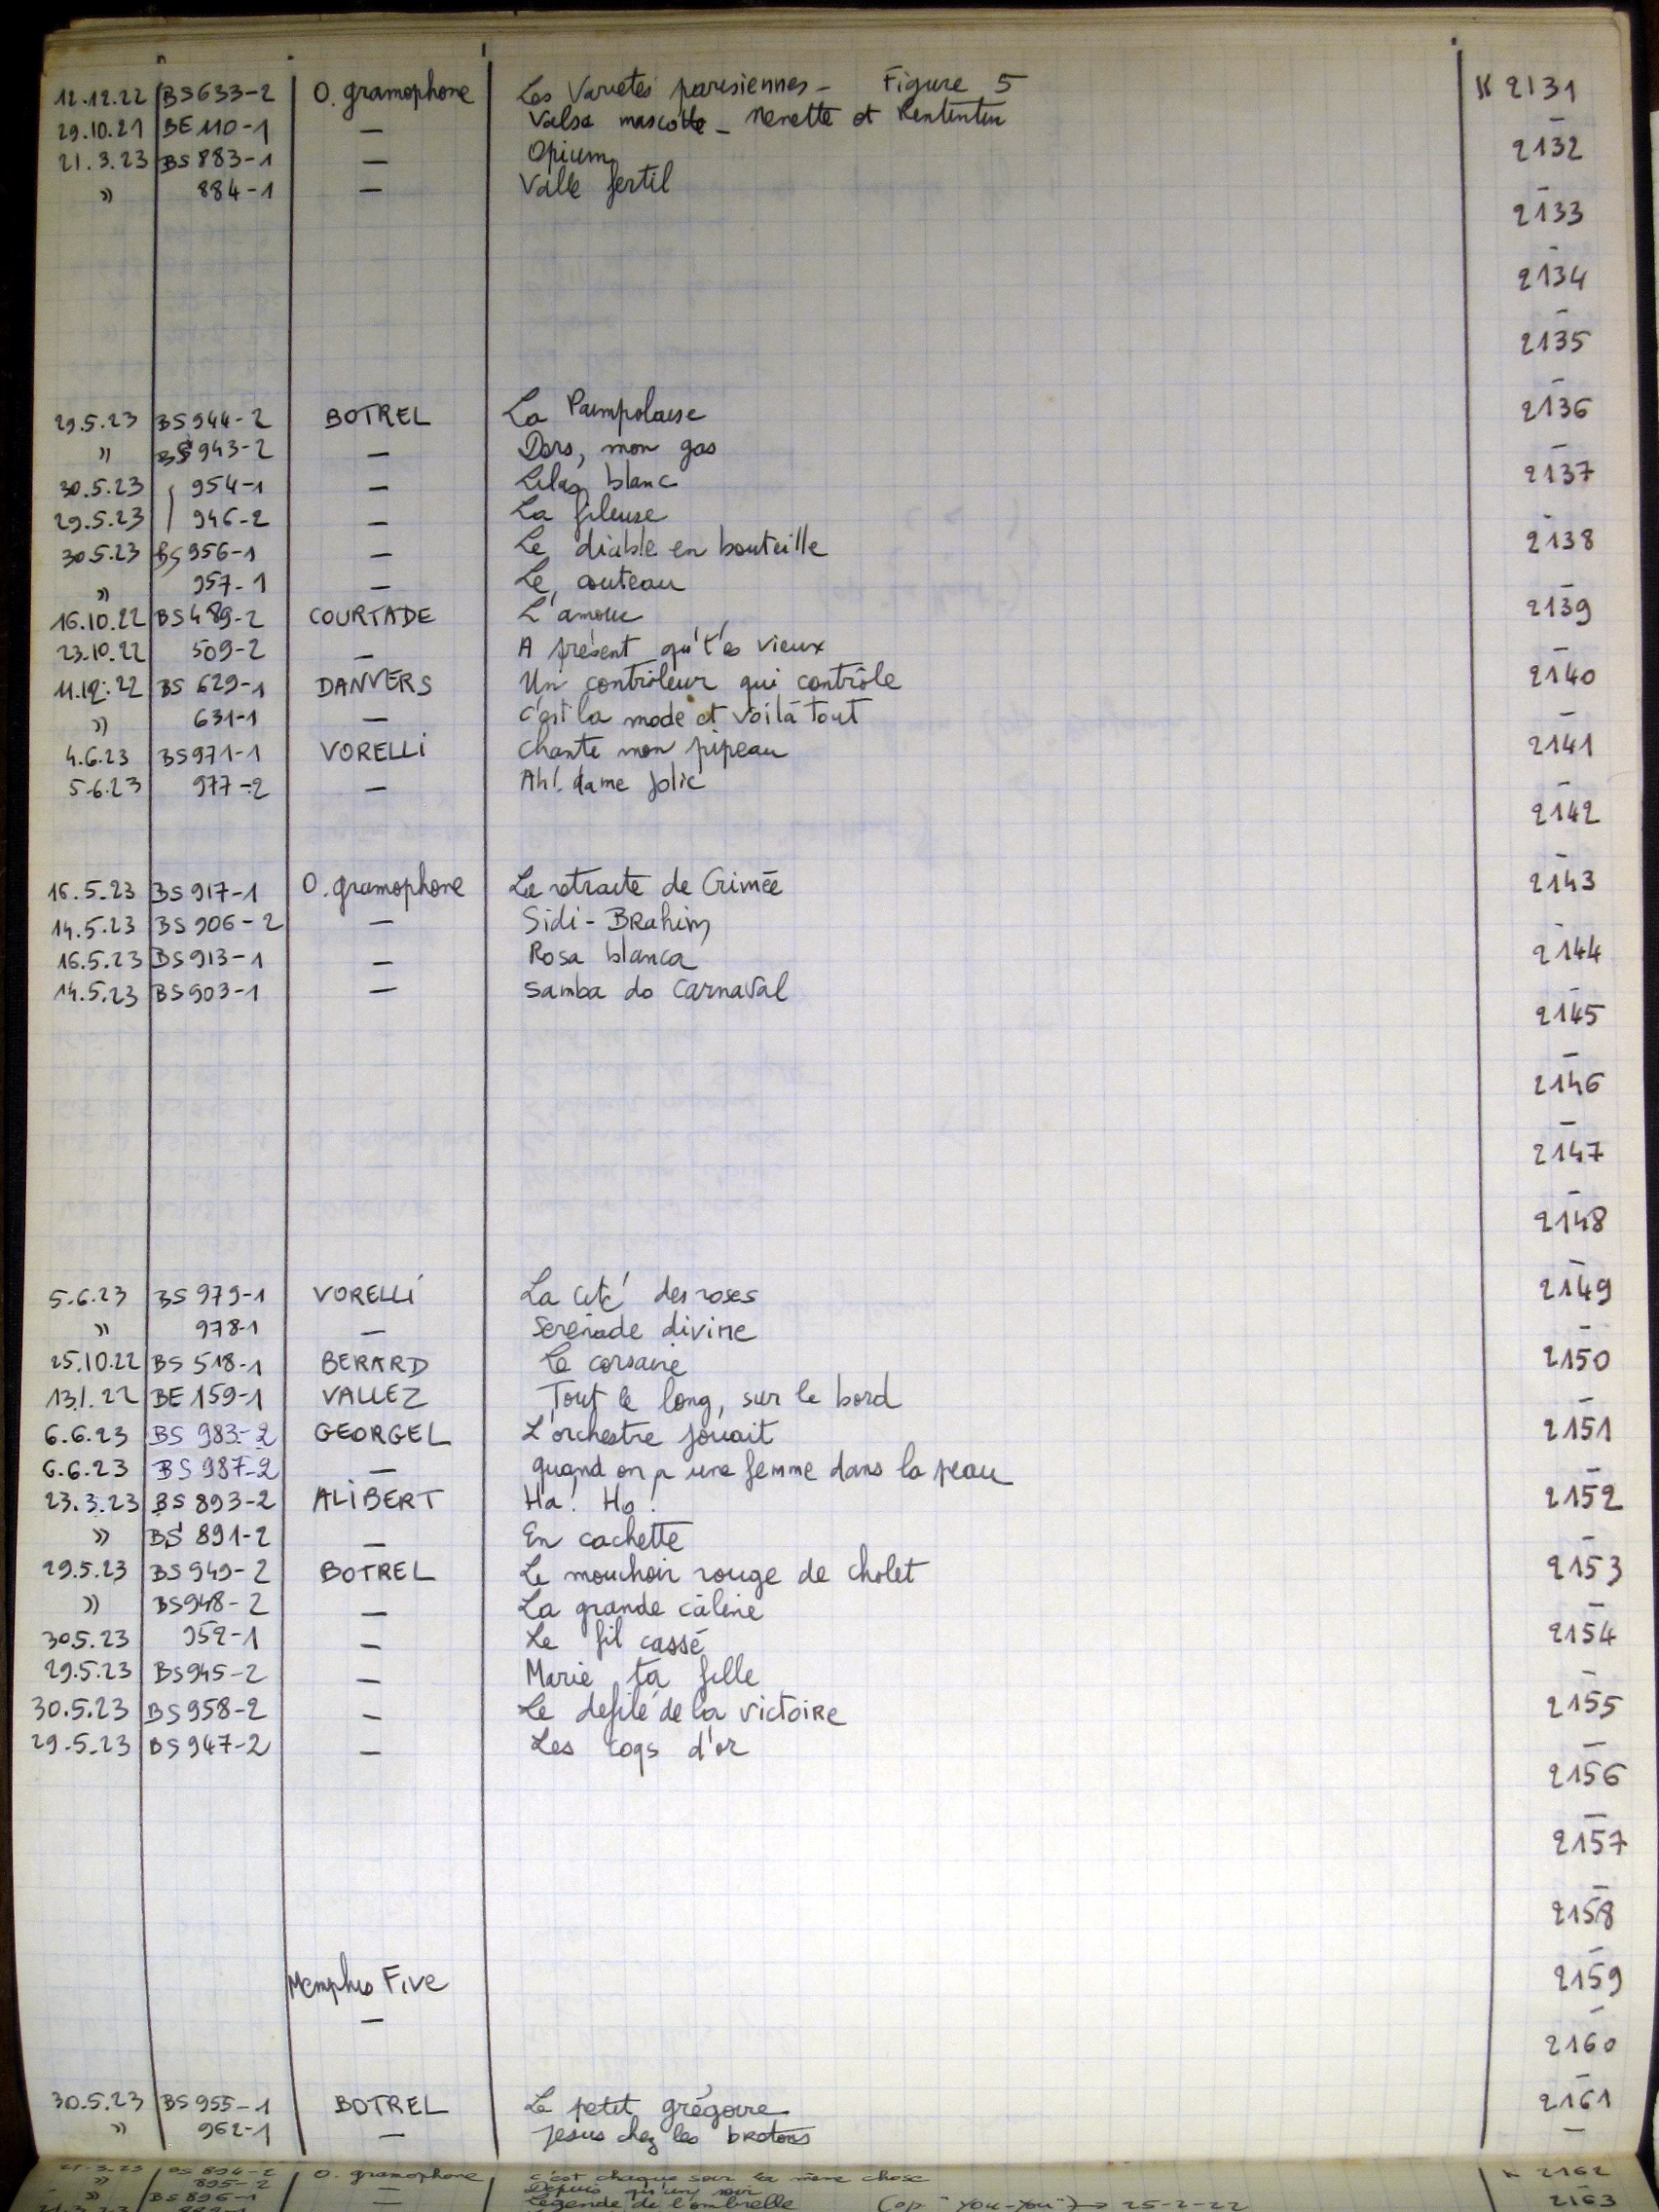 12.12.22 BS 633-2 O. gramophone Les Varietés parisiennes - Figure 5 K 2131
29.10.21 BE 110-1 — Valse mascotte - Nenette et Rentintin —
21.3.23 BS 883-1 — Opium 2132
» 884-1 — Valle fertil —
2133
—
2134
—
2135
—
29.5.23 BS 944-2 BOTREL La Paimpolaise 2136
» BS 943-2 — Dors, mon gas —
30.5.23 954-1 — Lilas blanc 2137
29.5.23 946-2 — La fileuse —
30.5.23 BS 956-1 — Le diable en bouteille 2138
» 957-1 — Le couteau —
16.10.22 BS 489-2 COURTADE L'amour 2139
23.10.22 509-2 — A présent qu't'es vieux —
11.12.22 BS 629-1 DANVERS Un contrôleur qui contrôle 2140
» 631-1 — C'est la mode et voilà tout —
4.6.23 BS 971-1 VORELLI Chante mon pipeau 2141
5.6.23 977-2 — Ah! dame jolie —
2142
—
16.5.23 BS 917-1 O. gramophone La retraite de Crimée 2143
14.5.23 BS 906-2 — Sidi-Brahim —
16.5.23 BS 913-1 — Rosa blanca 2144
14.5.23 BS 903-1 — Samba do Carnaval —
2145
—
2146
—
2147
—
2148
—
5.6.23 BS 979-1 VORELLI La cité des roses 2149
» 978-1 — Serénade divine —
25.10.22 BS 518-1 BERARD Le corsaire 2150
13.1.22 BE 159-1 VALLEZ Tout le long, sur le bord —
6.6.23 BS 983-2 GEORGEL L'orchestre jouait 2151
6.6.23 BS 987-2 — quand on a une femme dans la peau —
23.3.23 BS 893-2 ALIBERT Ha! Ha! 2152
» BS 891-2 — En cachette —
29.5.23 BS 949-2 BOTREL Le mouchoir rouge de Cholet 2153
» BS 948-2 — La grande câline —
30.5.23 952-1 — Le fil cassé 2154
29.5.23 BS 945-2 — Marie ta fille —
30.5.23 BS 958-2 — Le defilé de la victoire 2155
29.5.23 BS 947-2 — Les coqs d'or —
2156
—
2157
—
2158
—
Memphis Five 2159
— —
2160
—
30.5.23 BS 955-1 BOTREL Le petit grégoire 2161
» 962-1 — Jesus chez les bretons —
21.3.23 BS 894-2 O. gramophone C'est chaque soir la même chose K 2162
» 895-2 — Depuis qu'un soir
» BS 896-1 — Légende de l'ombrelle (op "You-You") → 25-2-22 2163